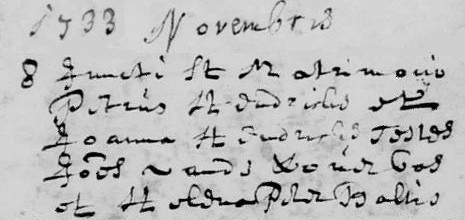 1733 Novembris
8 Juncti st Matrimonio
Petrus Hendrickx et
Joanna Hendrickx Testes
Joes vande
et Helena Peter